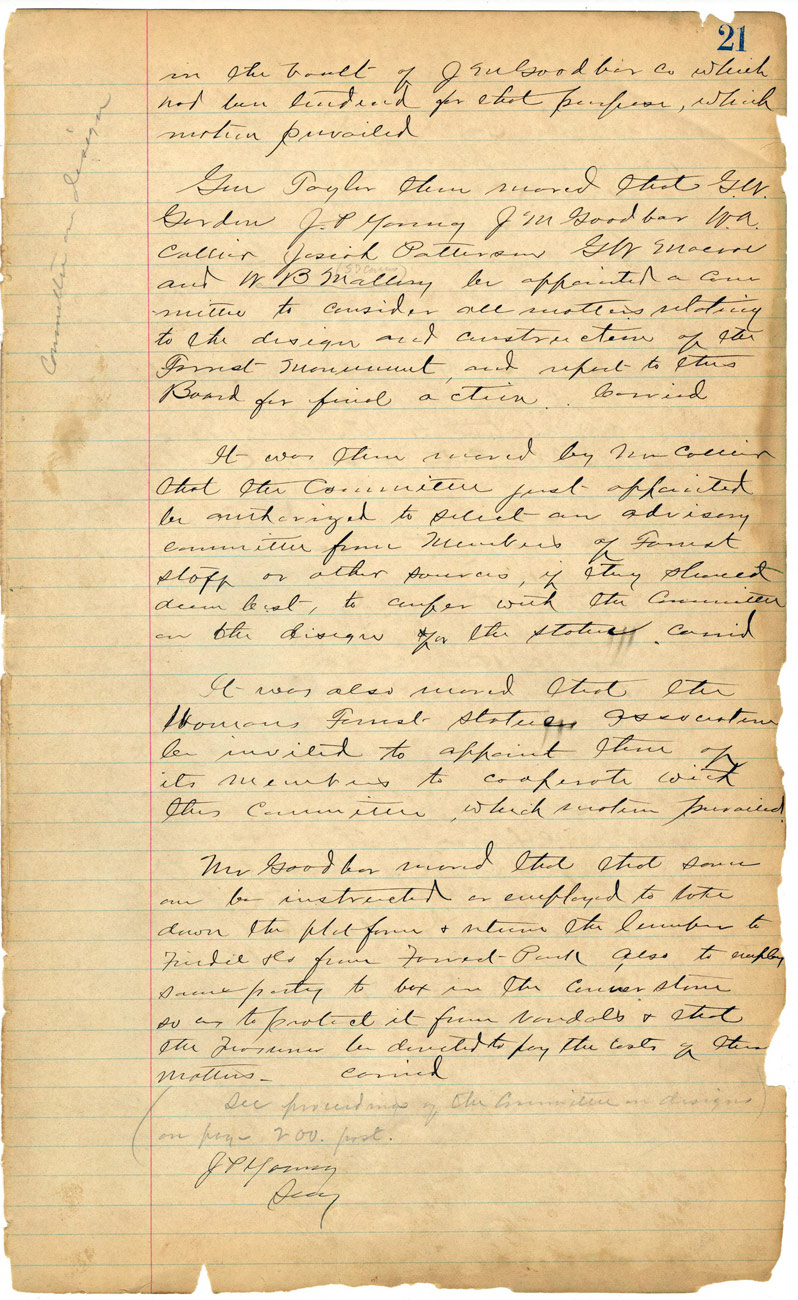 21
in the vault of J M Goodbar Co which
had been tendered for that purpose, which
motion prevailed
Committee on design
Gen Taylor then moved that G.W.
Gordon J.P. Young J M Goodbar W.A.
Collier Josiah Patterson G W Macrae
and W B Mallory be appointed a Com
mittee to consider all matters relating
to the design and construction of the
Forrest Monument, and report to this
Board for final action. Carried
It was then moved by Mr Collier
that the Committee just appointed
be authorized to select an advisory
committee from Members of Forrest
staff or other sources, if they should
deem best, to confer with the Committee
on the design for the statue. carrid
It was also moved that the
Womans Forrest Statue Association
be invited to appoint three of
its members to cooperate with
this Committee, which motion prevailed.
Mr Goodbar moved that that some
one be instructed or employed to take
down the platform & return the lumber to
& Co from Forrest Park also to employ
some party to box in the corner stone
so as to protect it from vandals & that
the Treasurer be directed to pay the costs of these
matters - carried
(See proceedings of the Committee on designs)
on page 200. post.
J P Young
Secy